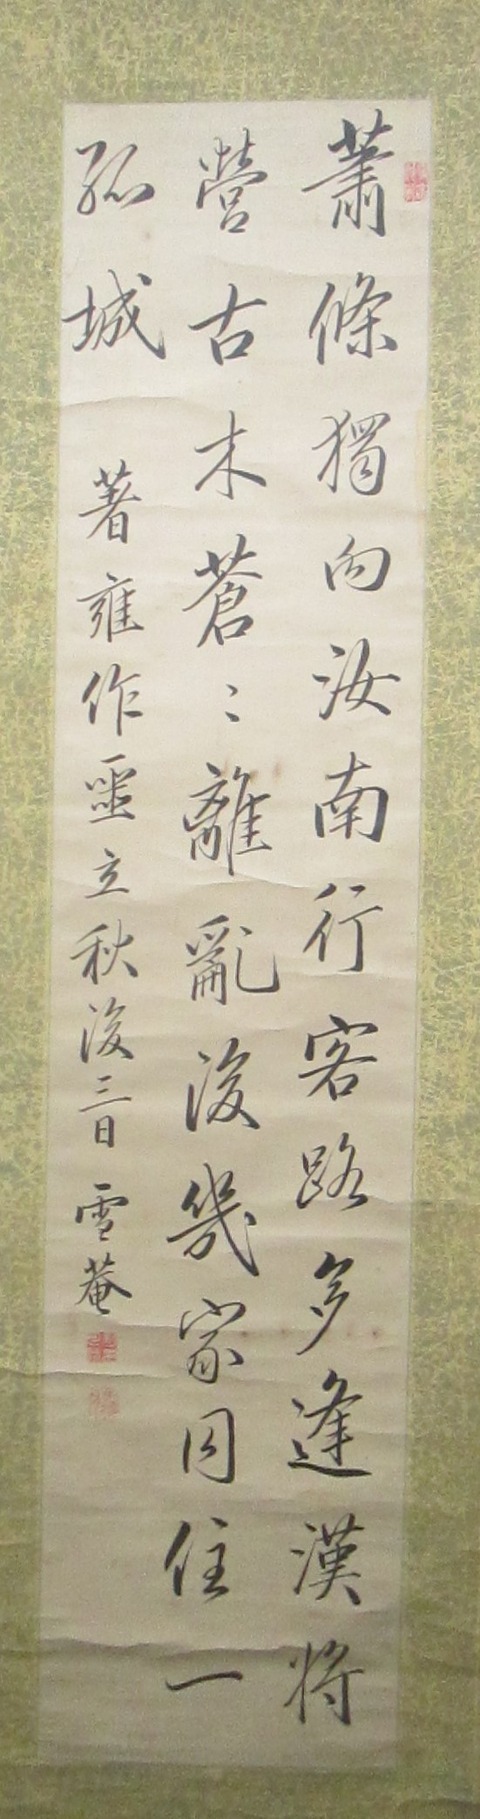 蕭條獨向汝南行客路多逢漢將
營古木蒼〻離亂後幾家同住一
孤城 著雍作噩立秋後三日 雪菴